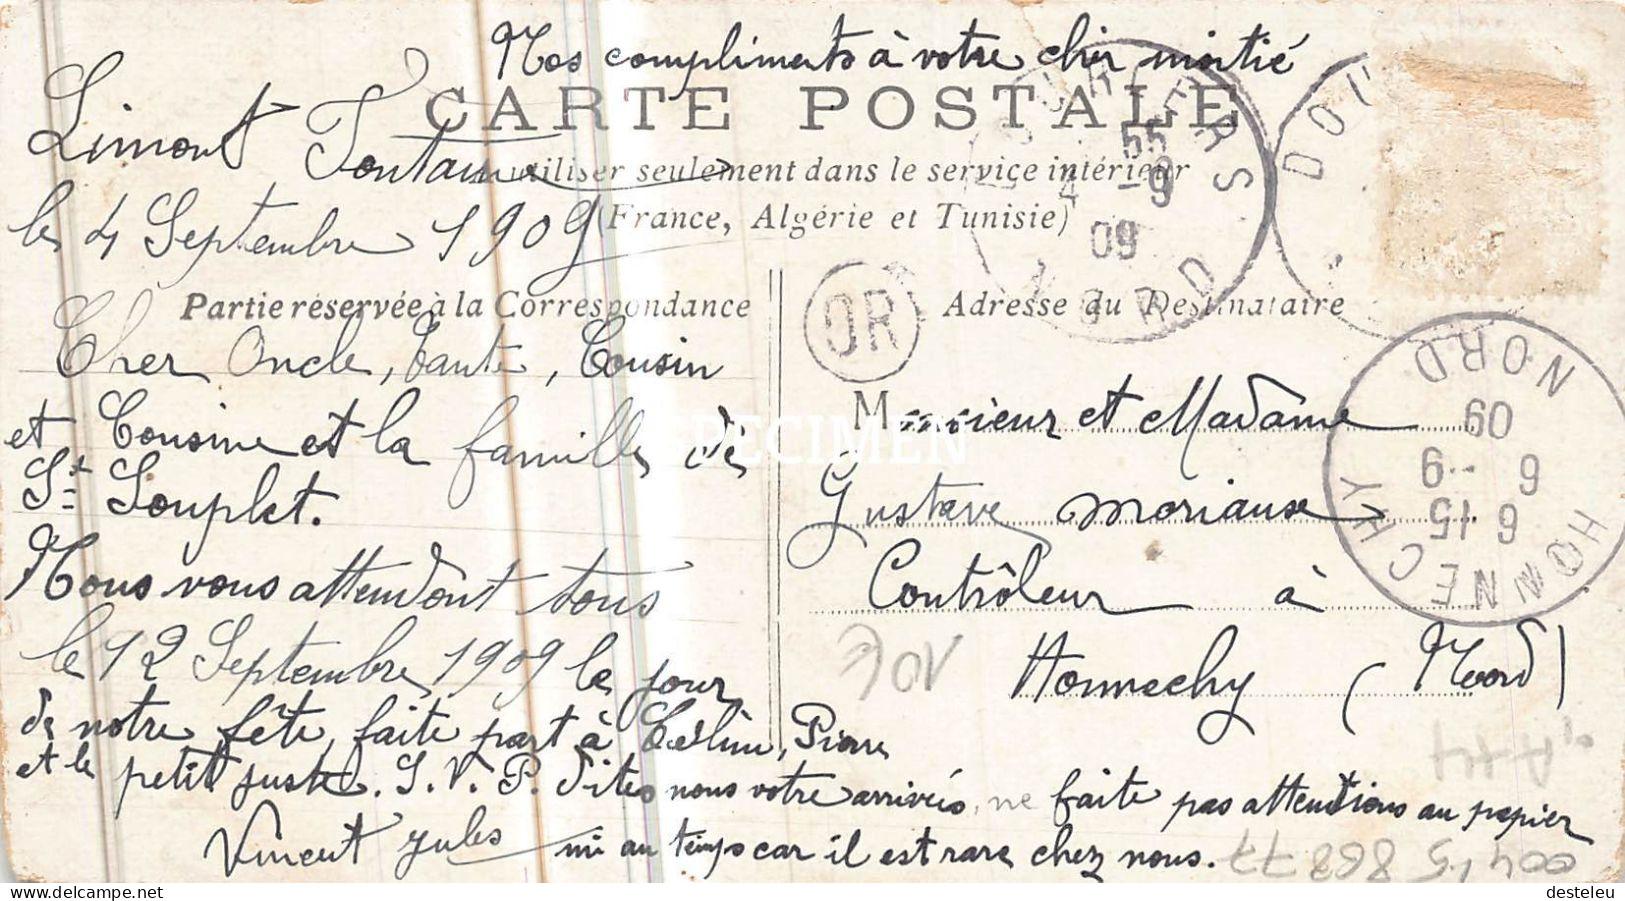 Nos compliments à votre cher moitié
CARTE POSTALE
Limont Fontaine
à utiliser seulement dans le service intérieur
le 4 Septembre 1909
(France, Algérie et Tunisie)
4 -9
09
NORD
Partie réservée à la Correspondance
OR
Adresse du Destinataire
Cher Oncle, Tante, Cousin
et Cousine et la famille de
St Souplet.
Nous vous attendont tous
le 12 Septembre 1909 le jour
de notre fête, faite part à Pierre
et le petit juste. S. V. P. Dites nous votre arrivés, ne faite pas attentions au papier
Vincent Jules ni au temps car il est rare chez nous.
Monsieur et Madame
Gustave Moriaux
Contrôleur à
Honnechy (Nord)
HONNECHY
6 15
6 -9
09
NORD
SPECIMEN
desteleu